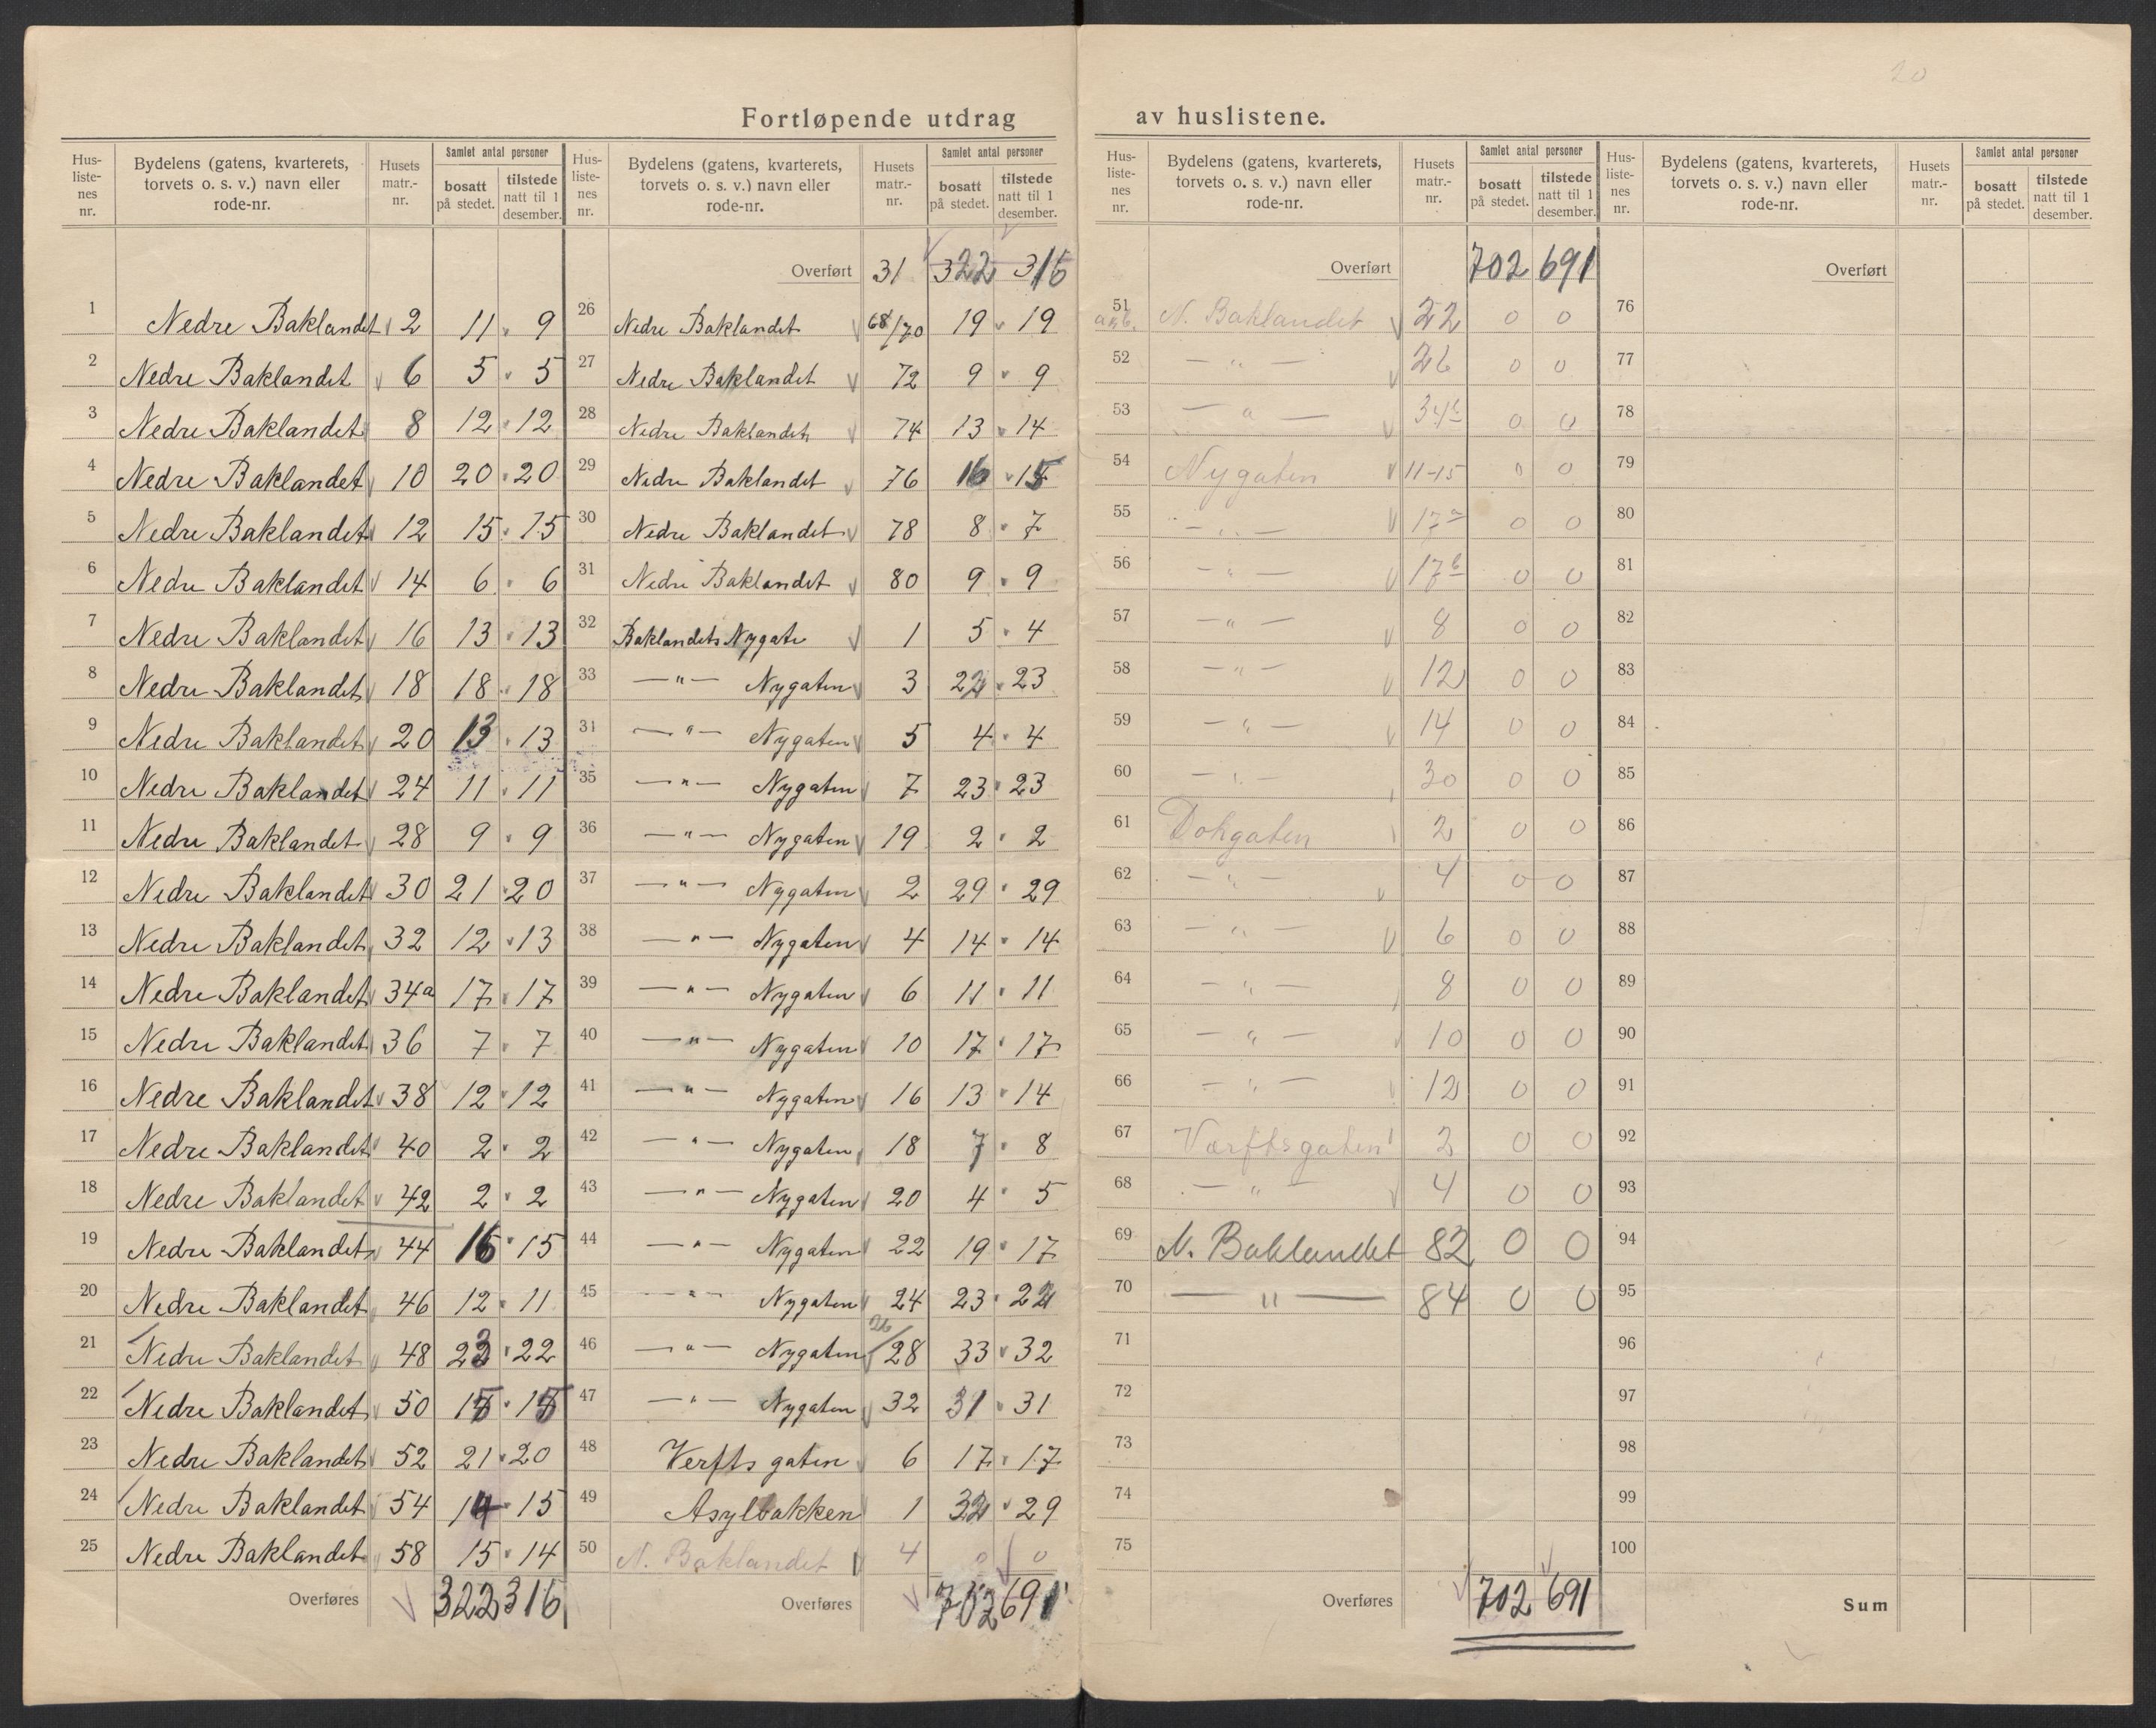 20
Fortløpende utdrag av huslistene.
Hus-listenes nr. Bydelens (gatens, kvarterets, torvets o. s. v.) navn eller rode-nr. Husets matr.-nr. Samlet antal personer bosatt på stedet. tilstede natt til 1 desember.
1 Nedre Baklandet 2 11 9
2 Nedre Baklandet 6 5 5
3 Nedre Baklandet 8 12 12
4 Nedre Baklandet 10 20 20
5 Nedre Baklandet 12 15 15
6 Nedre Baklandet 14 6 6
7 Nedre Baklandet 16 13 13
8 Nedre Baklandet 18 18 18
9 Nedre Baklandet 20 13 13
10 Nedre Baklandet 24 11 11
11 Nedre Baklandet 28 9 9
12 Nedre Baklandet 30 21 20
13 Nedre Baklandet 32 12 13
14 Nedre Baklandet 34a 17 17
15 Nedre Baklandet 36 7 7
16 Nedre Baklandet 38 12 12
17 Nedre Baklandet 40 2 2
18 Nedre Baklandet 42 2 2
19 Nedre Baklandet 44 16 15
20 Nedre Baklandet 46 12 11
21 Nedre Baklandet 48 23 22
22 Nedre Baklandet 50 15 15
23 Nedre Baklandet 52 21 20
24 Nedre Baklandet 54 14 15
25 Nedre Baklandet 58 15 14
Overføres 322 316
Hus-listenes nr. Bydelens (gatens, kvarterets, torvets o. s. v.) navn eller rode-nr. Husets matr.-nr. Samlet antal personer bosatt på stedet. tilstede natt til 1 desember.
Overført 31 322 316
26 Nedre Baklandet 68/70 19 19
27 Nedre Baklandet 72 9 9
28 Nedre Baklandet 74 13 14
29 Nedre Baklandet 76 16 15
30 Nedre Baklandet 78 8 7
31 Nedre Baklandet 80 9 9
32 Baklandets Nygate 1 5 4
33 — " — Nygaten 3 22 23
34 — " — Nygaten 5 4 4
35 — " — Nygaten 7 23 23
36 — " — Nygaten 19 2 2
37 — " — Nygaten 2 29 29
38 — " — Nygaten 4 14 14
39 — " — Nygaten 6 11 11
40 — " — Nygaten 10 17 17
41 — " — Nygaten 16 13 14
42 — " — Nygaten 18 7 8
43 — " — Nygaten 20 4 5
44 — " — Nygaten 22 19 17
45 — " — Nygaten 24 23 22
46 — " — Nygaten 26/28 33 32
47 — " — Nygaten 32 31 31
48 Verfts gaten 6 17 17
49 Asylbakken 1 32 29
50 N. Baklandet 4 0 0
Overføres 702 691
Hus-listenes nr. Bydelens (gatens, kvarterets, torvets o. s. v.) navn eller rode-nr. Husets matr.-nr. Samlet antal personer bosatt på stedet. tilstede natt til 1 desember.
Overført 702 691
51 N. Baklandet 22 0 0
52 — " — 26 0 0
53 — " — 34b 0 0
54 Nygaten 11-15 0 0
55 — " — 17a 0 0
56 — " — 17b 0 0
57 — " — 8 0 0
58 — " — 12 0 0
59 — " — 14 0 0
60 — " — 30 0 0
61 Dokgaten 2 0 0
62 — " — 4 0 0
63 — " — 6 0 0
64 — " — 8 0 0
65 — " — 10 0 0
66 — " — 12 0 0
67 Værftsgaten 2 0 0
68 — " — 4 0 0
69 N. Baklandet 82 0 0
70 — " — 84 0 0
71
72
73
74
75
Overføres 702 691
Hus-listenes nr. Bydelens (gatens, kvarterets, torvets o. s. v.) navn eller rode-nr. Husets matr.-nr. Samlet antal personer bosatt på stedet. tilstede natt til 1 desember.
Overført
76
77
78
79
80
81
82
83
84
85
86
87
88
89
90
91
92
93
94
95
96
97
98
99
100
Sum